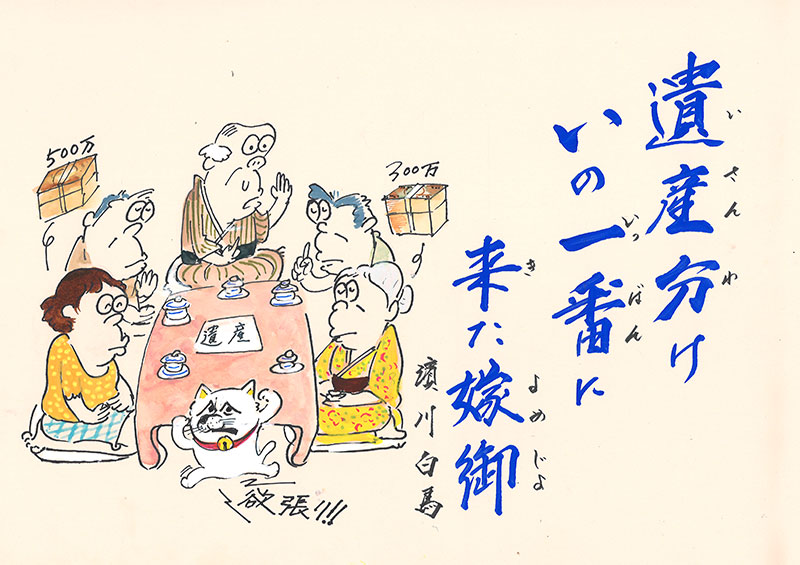 遺産分け
いさんわ
いの一番に
いっばん
来た嫁御
きよめじよ
濱川白馬
500万
300万
遺産
欲張り!!!